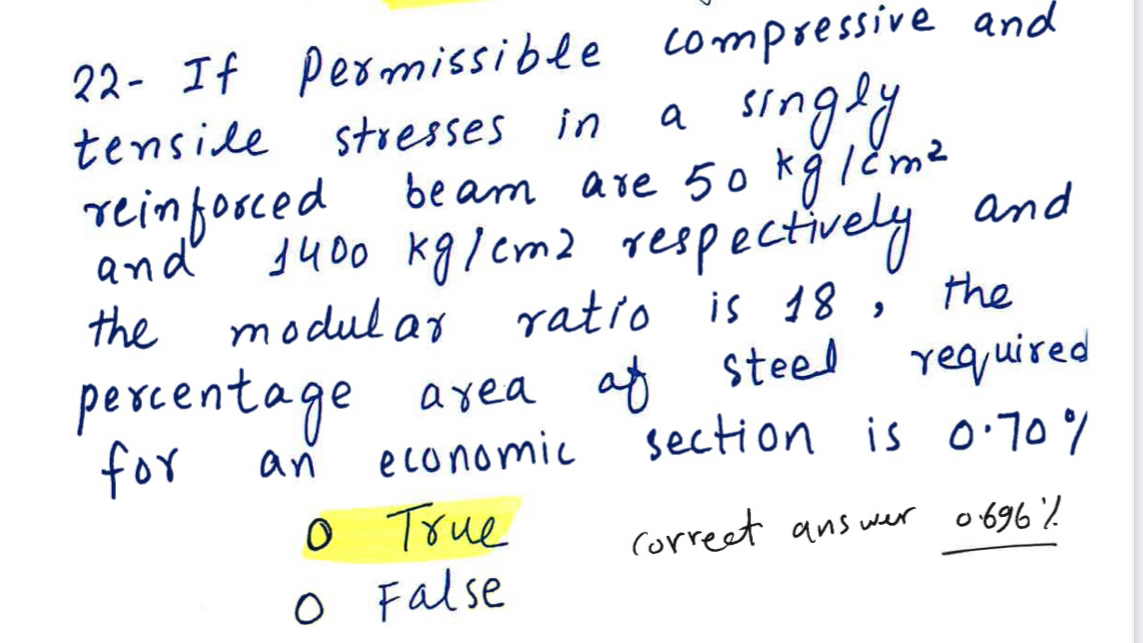 22- If Permissible compressive and
tensile stresses in a singly
reinforced beam are 50 kg/cm²
and 1400 kg/cm2 respectively and
the modular ratio is 18, the
percentage area of steel required
for an economic section is 0.70%
O True
correct answer 0.696%
O False